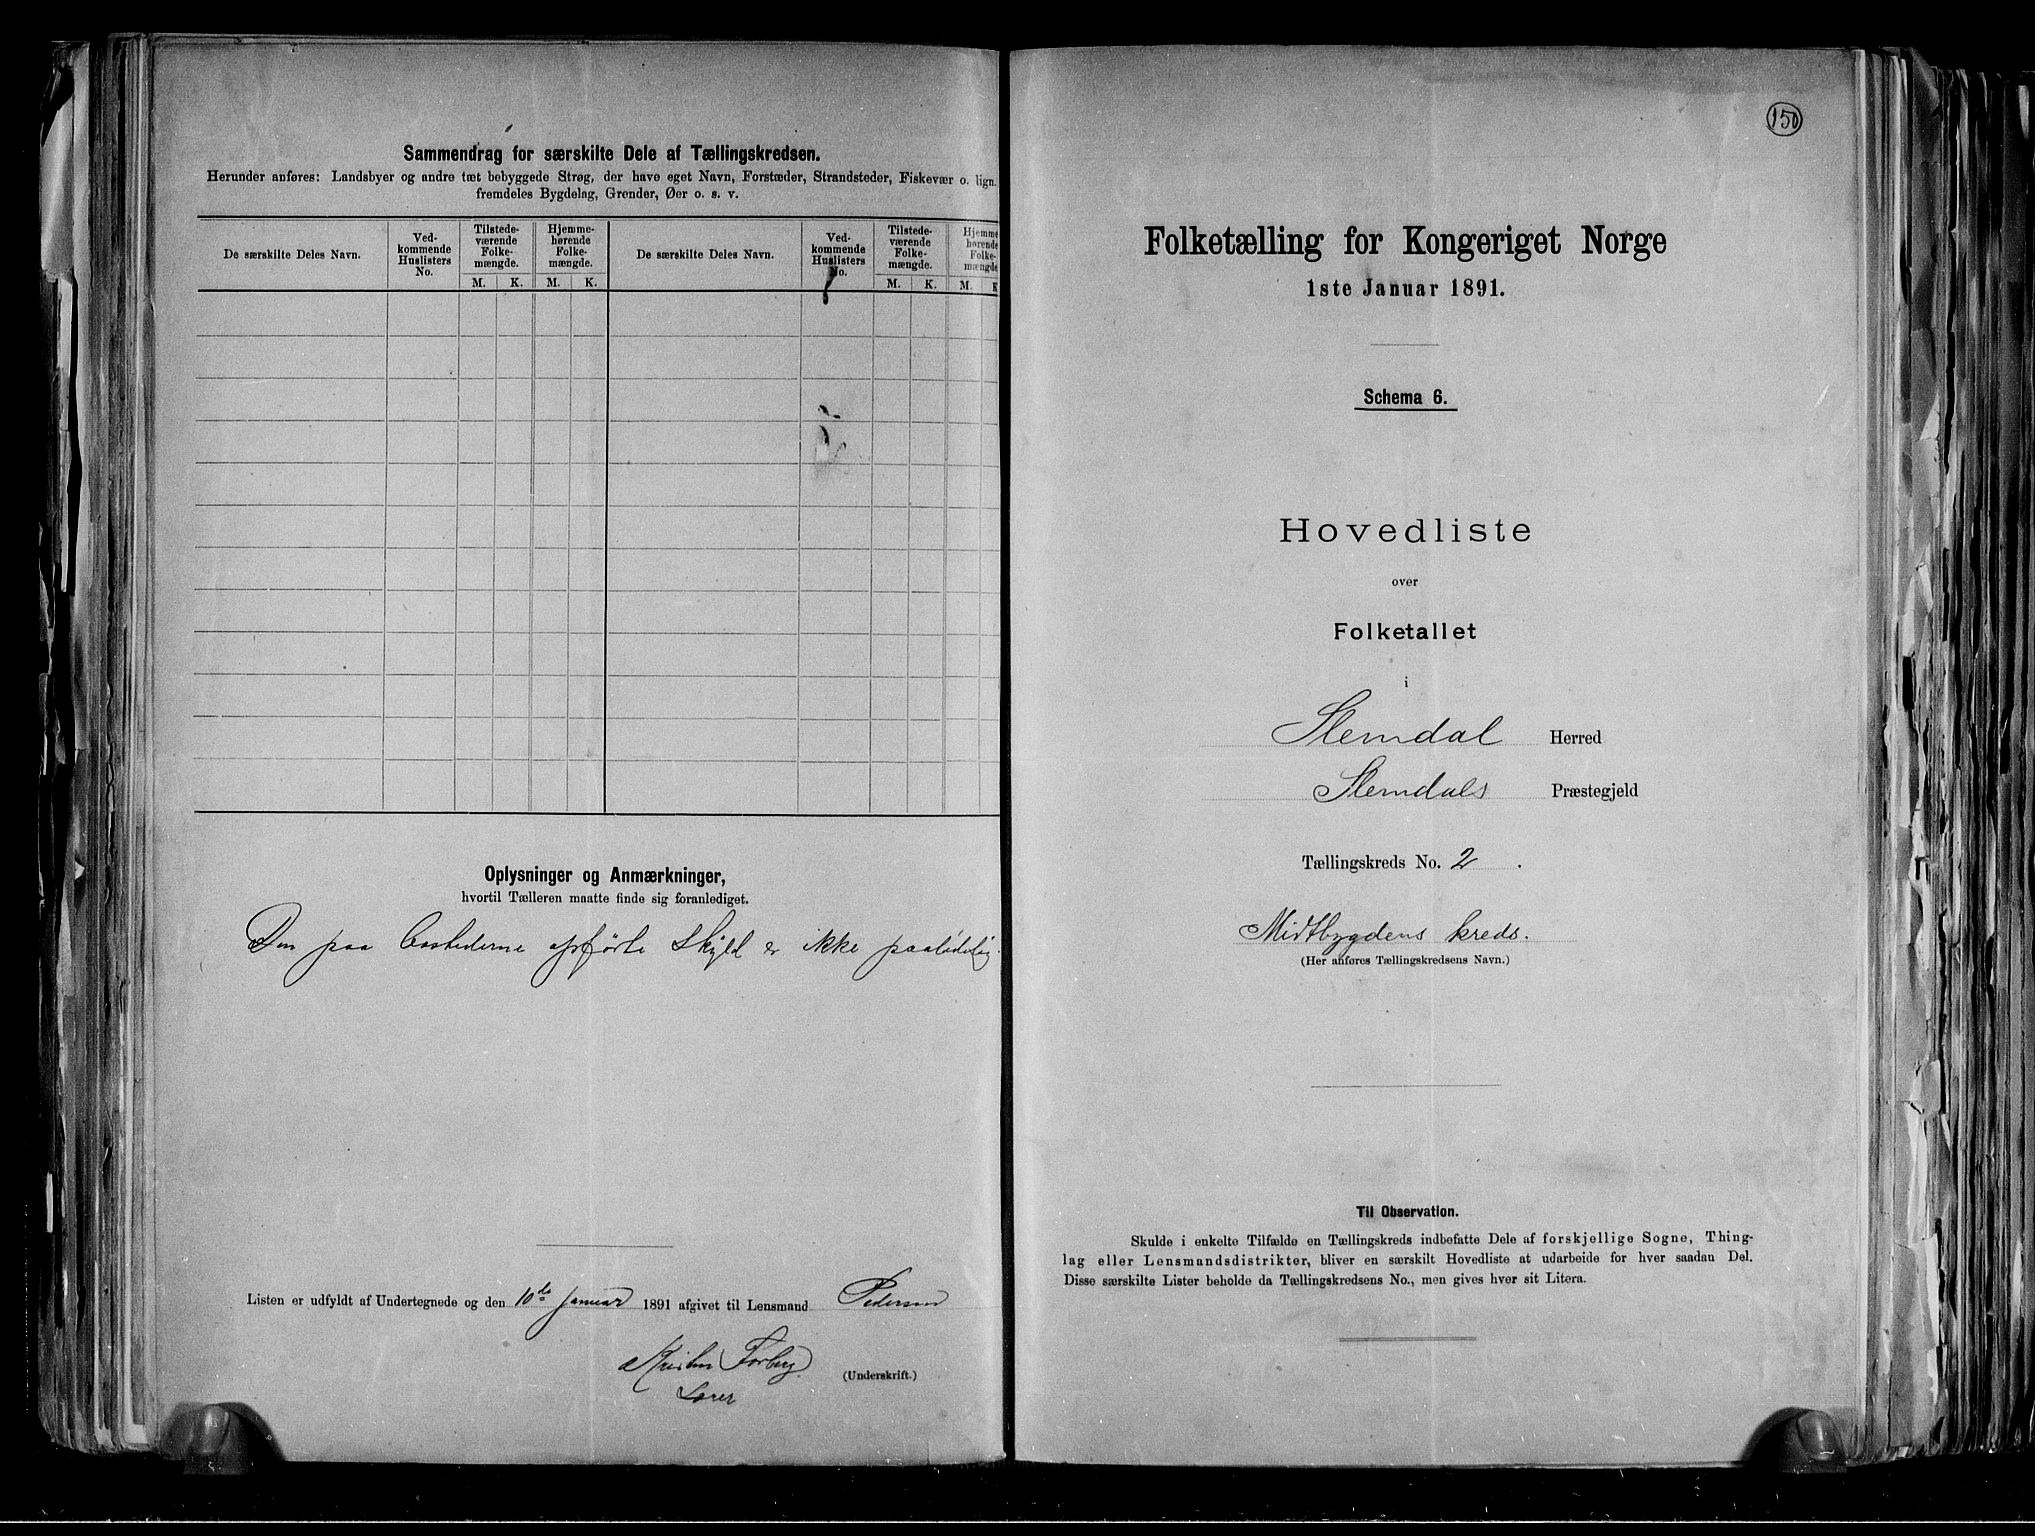 Sammendrag for særskilte Dele af Tællingskredsen.
Herunder anføres: Landsbyer og andre tæt bebyggede Strøg, der have eget Navn, Forstæder, Strandsteder, Fiskevær o. lign.
fremdeles Bygdelag, Grender, Øer o. s. v.
De særskilte Deles Navn.
Ved-
kommende
Huslisters
No.
Tilstede-
værende
Folke-
mængde.
Hjemme-
hørende
Folke-
mængde.
De særskilte Deles Navn.
Ved-
kommende
Huslisters
No.
Tilstede-
værende
Folke-
mængde.
Hjemme-
hørende
Folke-
mængde
M. K. M. K. M. K. M. K
Oplysninger og Anmærkninger,
hvortil Tælleren maatte finde sig foranlediget.
Den paa Bostederne opførte Skyld er ikke paalidelig.
Listen er udfyldt af Undertegnede og den 10de Januar 1891 afgivet til Lensmand Pedersen
Kristen Forberg
Lærer
(Underskrift.)
150
Folketælling for Kongeriget Norge
1ste Januar 1891.
Schema 6.
Hovedliste
over
Folketallet
i
Slemdal Herred
Slemdals Præstegjeld
Tællingskreds No. 2.
Midtbygdens kreds.
(Her anføres Tællingskredsens Navn.)
Til Observation.
Skulde i enkelte Tilfælde en Tællingskreds indbefatte Dele af forskjellige Sogne, Thing-
lag eller Lensmandsdistrikter, bliver en særskilt Hovedliste at udarbeide for hver saadan Del.
Disse særskilte Lister beholde da Tællingskredsens No., men gives hver sit Litera.